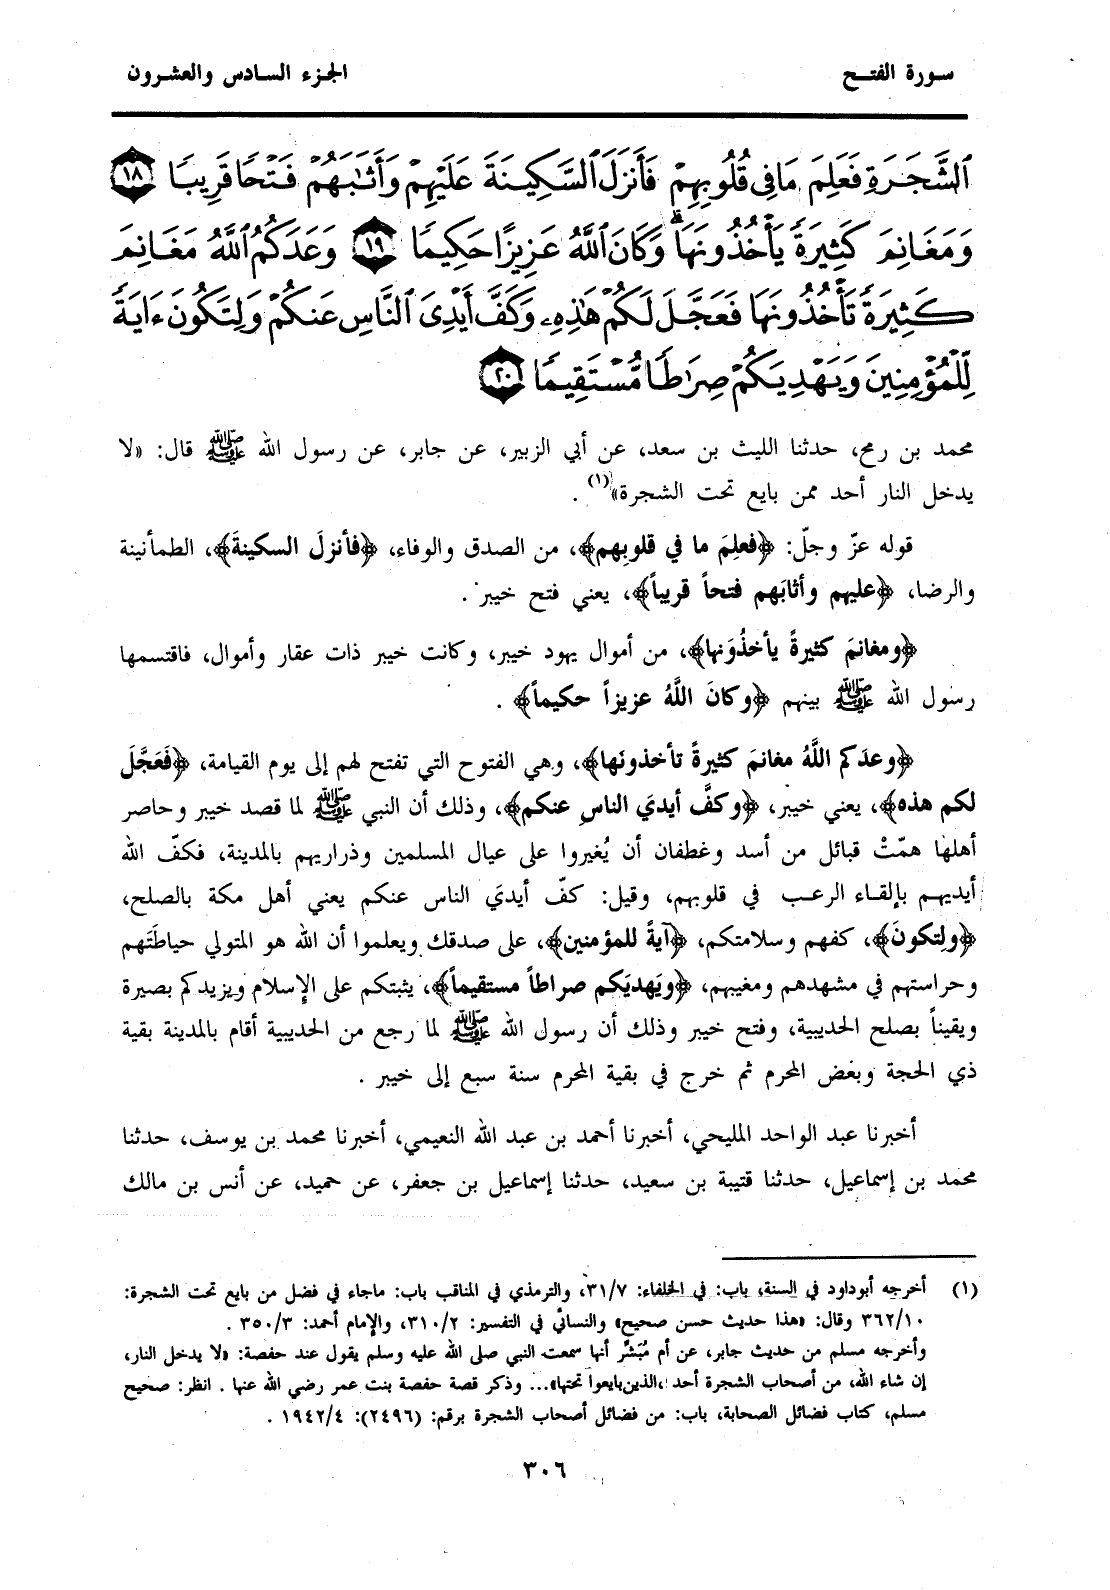 سورة الفتح
الجزء السادس والعشرون
ٱلشَّجَرَةِ فَعَلِمَ مَا فِى قُلُوبِهِمْ فَأَنزَلَ ٱلسَّكِينَةَ عَلَيْهِمْ وَأَثَٰبَهُمْ فَتْحًا قَرِيبًا ١٨
وَمَغَانِمَ كَثِيرَةً يَأْخُذُونَهَا ۗ وَكَانَ ٱللَّهُ عَزِيزًا حَكِيمًا ١٩ وَعَدَكُمُ ٱللَّهُ مَغَانِمَ
كَثِيرَةً تَأْخُذُونَهَا فَعَجَّلَ لَكُمْ هَٰذِهِۦ وَكَفَّ أَيْدِىَ ٱلنَّاسِ عَنكُمْ وَلِتَكُونَ ءَايَةً
لِّلْمُؤْمِنِينَ وَيَهْدِيَكُمْ صِرَٰطًا مُّسْتَقِيمًا ٢٠
محمد بن رمح، حدثنا الليث بن سعد، عن أبي الزبير، عن جابر، عن رسول الله ﷺ قال: «لا
يدخل النار أحد ممن بايع تحت الشجرة»(١) .
قوله عزّ وجلّ: ﴿فعلِمَ ما في قلوبِهم﴾، من الصدق والوفاء، ﴿فأنزلَ السكينةَ﴾، الطمأنينة
والرضا، ﴿عليهم وأثابَهم فتحاً قريباً﴾، يعني فتح خيبر .
﴿ومغانمَ كثيرةً يأخذُونَها﴾، من أموال يهود خيبر، وكانت خيبر ذات عقار وأموال، فاقتسمها
رسول الله ﷺ بينهم ﴿وكانَ اللَّهُ عزيزاً حكيماً﴾ .
﴿وعدَكم اللَّهُ مغانمَ كثيرةً تأخذونَها﴾، وهي الفتوح التي تفتح لهم إلى يوم القيامة، ﴿فَعَجَّلَ
لكم هذه﴾، يعني خيبر، ﴿وكفَّ أيديَ الناسِ عنكم﴾، وذلك أن النبي ﷺ لما قصد خيبر وحاصر
أهلها همّتْ قبائل من أسد وغطفان أن يُغيروا على عيال المسلمين وذراريهم بالمدينة، فكفّ الله
أيديهم بإلقاء الرعب في قلوبهم، وقيل: كفّ أيديَ الناس عنكم يعني أهل مكة بالصلح،
﴿ولِتكونَ﴾، كفهم وسلامتكم، ﴿آيةً للمؤمنين﴾، على صدقك ويعلموا أن الله هو المتولي حياطَتَهم
وحراستهم في مشهدهم ومغيبهم، ﴿ويَهديَكم صراطاً مستقيماً﴾، يثبتكم على الإسلام ويزيدكم بصيرة
ويقيناً بصلح الحديبية، وفتح خيبر وذلك أن رسول الله ﷺ لما رجع من الحديبية أقام بالمدينة بقية
ذي الحجة وبعض المحرم ثم خرج في بقية المحرم سنة سبع إلى خيبر .
أخبرنا عبد الواحد المليحي، أخبرنا أحمد بن عبد الله النعيمي، أخبرنا محمد بن يوسف، حدثنا
محمد بن إسماعيل، حدثنا قتيبة بن سعيد، حدثنا إسماعيل بن جعفر، عن حميد، عن أنس بن مالك
(١) أخرجه أبوداود في السنة، باب: في الخلفاء: ٣١/٧، والترمذي في المناقب باب: ماجاء في فضل من بايع تحت الشجرة:
٣٦٢/١٠ وقال: «هذا حديث حسن صحيح» والنسائي في التفسير: ٣١٠/٢، والإمام أحمد: ٣٥٠/٣ .
وأخرجه مسلم من حديث جابر، عن أم مُبَشِّر أنها سمعت النبي صلى الله عليه وسلم يقول عند حفصة: «لا يدخل النار،
إن شاء الله، من أصحاب الشجرة أحد ،الذين بايعوا تحتها»... وذكر قصة حفصة بنت عمر رضي الله عنها . انظر: صحيح
مسلم، كتاب فضائل الصحابة، باب: من فضائل أصحاب الشجرة برقم: (٢٤٩٦): ١٩٤٢/٤ .
٣٠٦